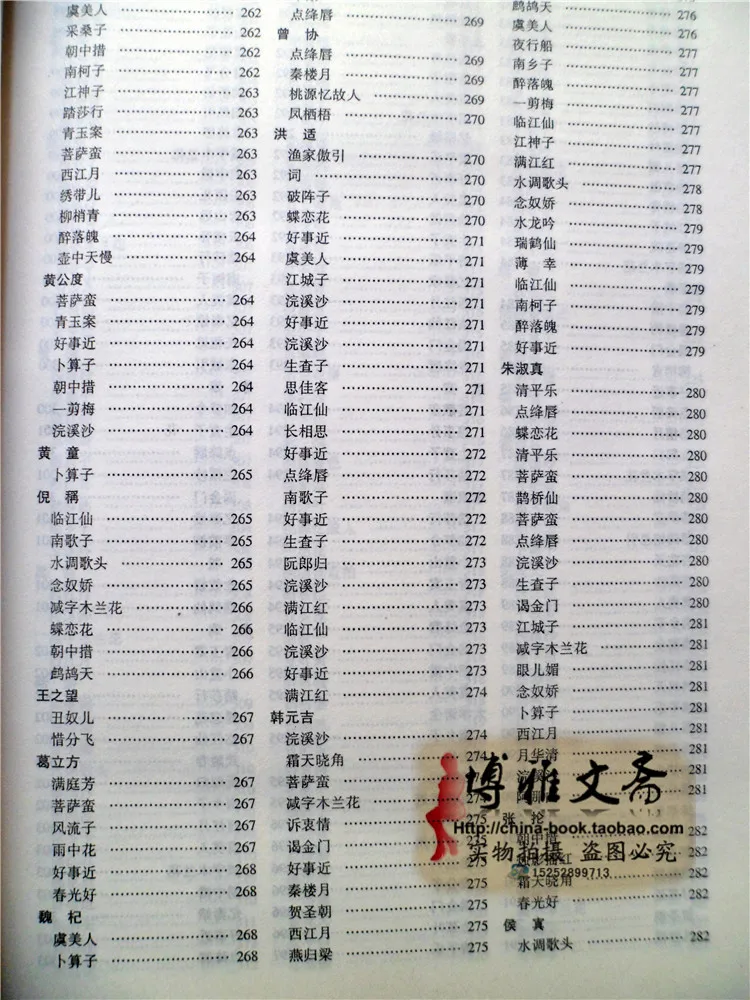 虞美人 262
采桑子 262
朝中措 262
南柯子 262
江神子 263
踏莎行 263
青玉案 263
菩萨蛮 263
西江月 263
绣带儿 263
柳梢青 263
醉落魄 264
壶中天慢 264
黄公度
菩萨蛮 264
青玉案 264
好事近 264
卜算子 264
朝中措 264
一剪梅 264
浣溪沙 264
黄 童
卜算子 265
倪 稱
临江仙 265
南歌子 265
水调歌头 265
念奴娇 265
减字木兰花 266
蝶恋花 266
朝中措 266
鹧鸪天 266
王之望
丑奴儿 267
惜分飞 267
葛立方
满庭芳 267
菩萨蛮 267
风流子 267
雨中花 267
好事近 268
春光好 268
魏 杞
虞美人 268
卜算子 268
点绛唇 269
曾 协
点绛唇 269
秦楼月 269
桃源忆故人 269
凤栖梧 270
洪 适
渔家傲引 270
词 270
破阵子 270
蝶恋花 270
好事近 271
虞美人 271
江城子 271
浣溪沙 271
好事近 271
浣溪沙 271
生查子 271
思佳客 271
临江仙 271
长相思 271
好事近 272
点绛唇 272
南歌子 272
好事近 272
生查子 272
阮郎归 273
浣溪沙 273
满江红 273
临江仙 273
浣溪沙 273
好事近 273
满江红 274
韩元吉
浣溪沙 274
霜天晓角 274
菩萨蛮
减字木兰花
诉衷情 275
谒金门
好事近 275
秦楼月 275
贺圣朝 275
西江月 275
燕归梁 275
鹧鸪天 276
虞美人 276
夜行船 277
南乡子 277
醉落魄 277
一剪梅 277
临江仙 277
江神子 277
满江红 277
水调歌头 278
念奴娇 278
水龙吟 279
瑞鹤仙 279
薄 幸 279
临江仙 279
南柯子 279
醉落魄 279
好事近 279
朱淑真
清平乐 280
点绛唇 280
蝶恋花 280
清平乐 280
菩萨蛮 280
鹊桥仙 280
菩萨蛮 280
点绛唇 280
浣溪沙 280
生查子 280
谒金门 280
江城子 281
减字木兰花 281
眼儿媚 281
念奴娇 281
卜算子 281
西江月 281
月华清 281
281
281
张 抡
朝中措 282
282
霜天晓角 282
春光好 282
侯 寘
水调歌头 282
博雅文斋
Http://china-book.taobao.com
实物拍摄 盗图必究
15252899713